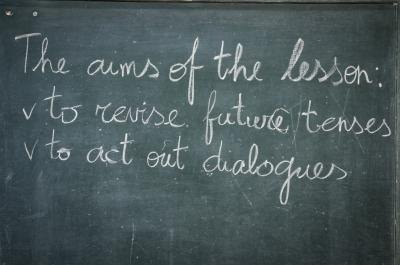 The aims of the lesson:
v to revise future tenses
v to act out dialogues